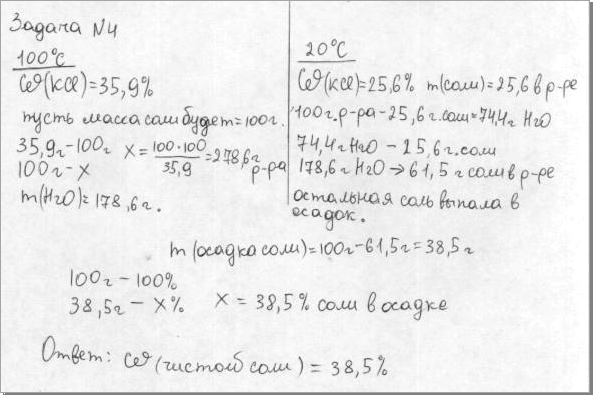 Задача N4
100°C
ω(KCl)=35,9%
пусть масса соли будет=100г.
35,9г-100г
100г-X
X=100·100/35,9=278,6г р-ра
m(H2O)=178,6г.
20°C
ω(KCl)=25,6% m(соли)=25,6 в р-ре
100г.р-ра-25,6г.соли=74,4г H2O
74,4г H2O - 25,6г.соли
178,6г H2O → 61,5г соли в р-ре
остальная соль выпала в
осадок.
m(осадка соли)=100г-61,5г=38,5г
100г-100%
38,5г-X%
X=38,5% соли в осадке
Ответ: ω(чистой соли)=38,5%